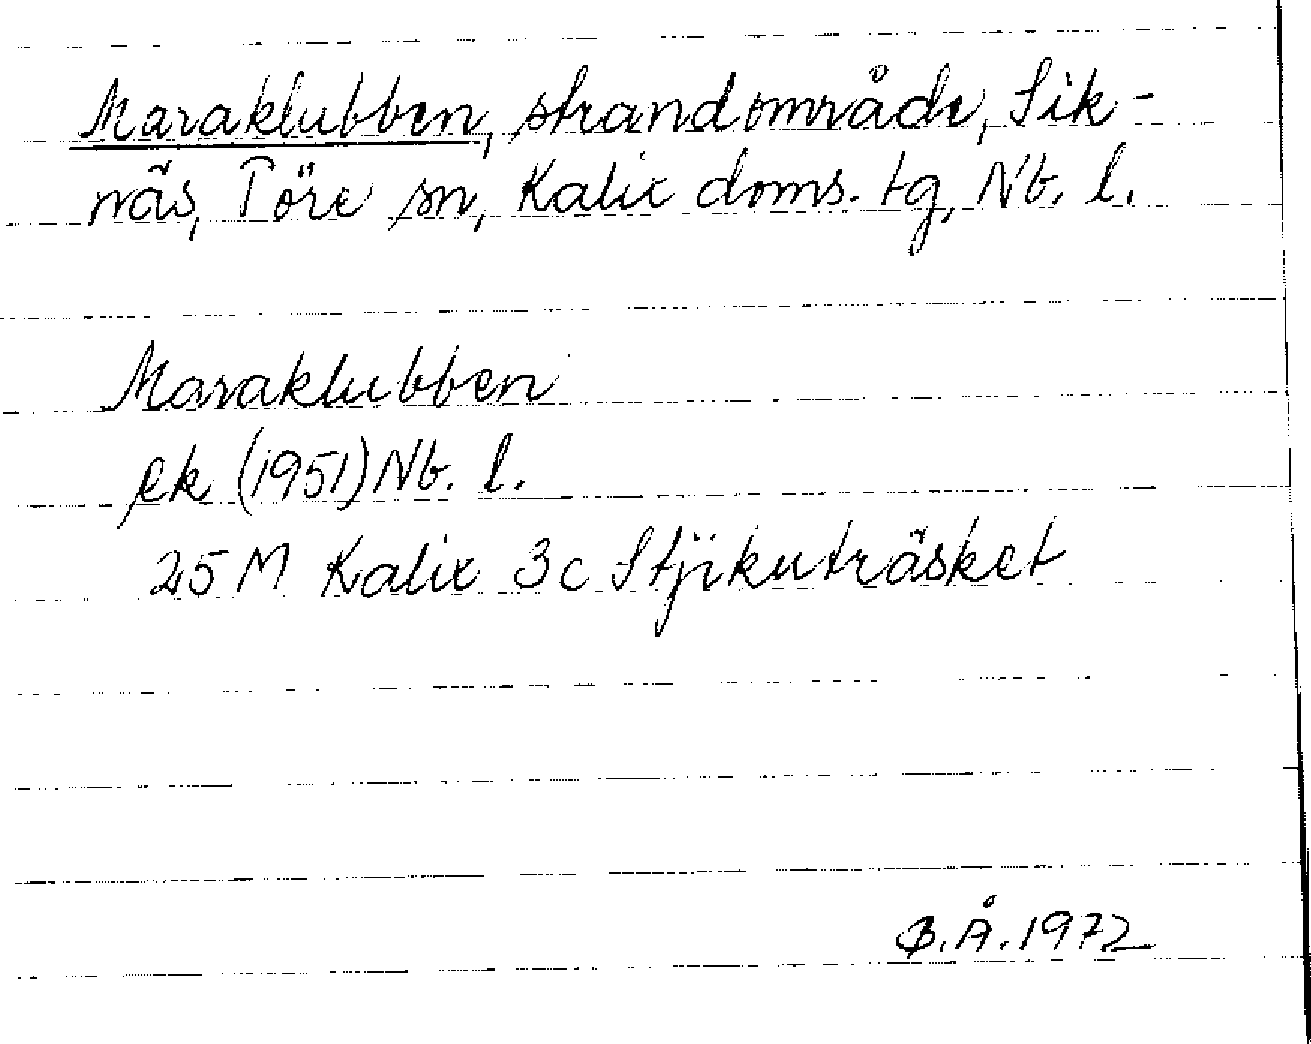 Maraklubben, strandområde, Sik-
näs, Töre sn, Kalix doms. tg, Nb. l.
Maraklubben
ek (1951) Nb. l.
25 M Kalix 3c Stjikuträsket
B.Å. 1972